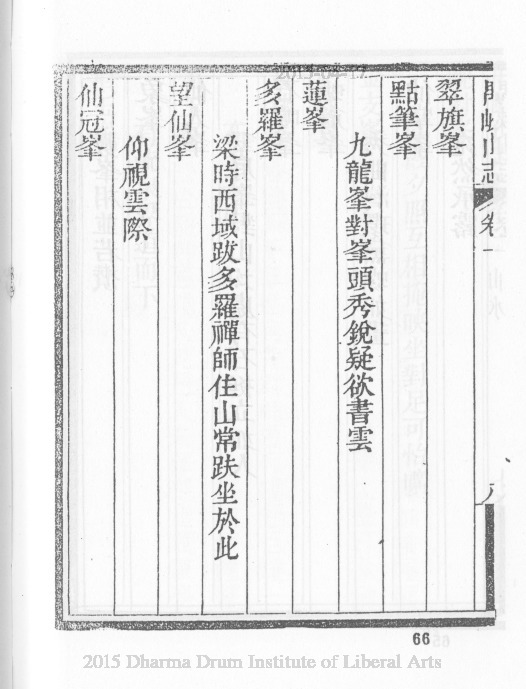 山志 卷一
翠旗峯
點筆峯
九龍峯對峯頭秀銳疑欲書雲
蓮峯
多羅峯
梁時西域跋多羅禪師住山常趺坐於此
望仙峯
仰視雲際
仙冠峯
66
2015 Dharma Drum Institute of Liberal Arts